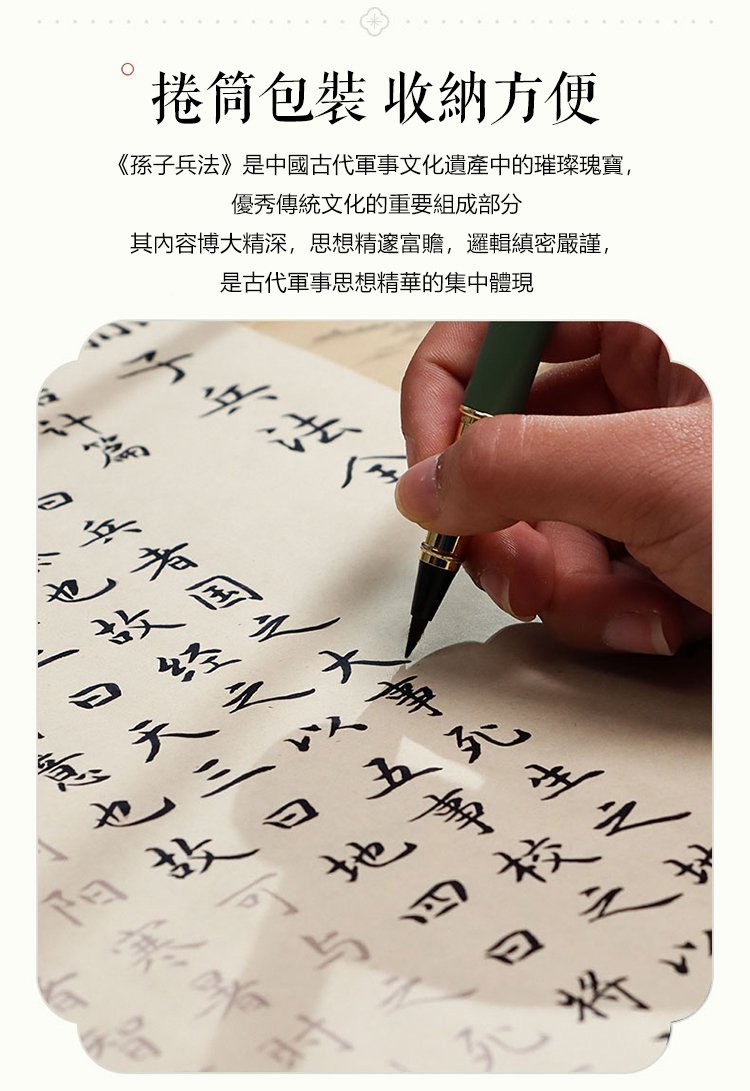 捲筒包裝 收納方便
《孫子兵法》是中國古代軍事文化遺產中的璀璨瑰寶，
優秀傳統文化的重要組成部分
其內容博大精深，思想精邃富贍，邏輯縝密嚴謹，
是古代軍事思想精華的集中體現
子兵法全
计篇
曰兵者国之大事死生之地
也故经之以五事校之以
二曰天三曰地四曰将
意也故可与之死
阳寒暑时
者智